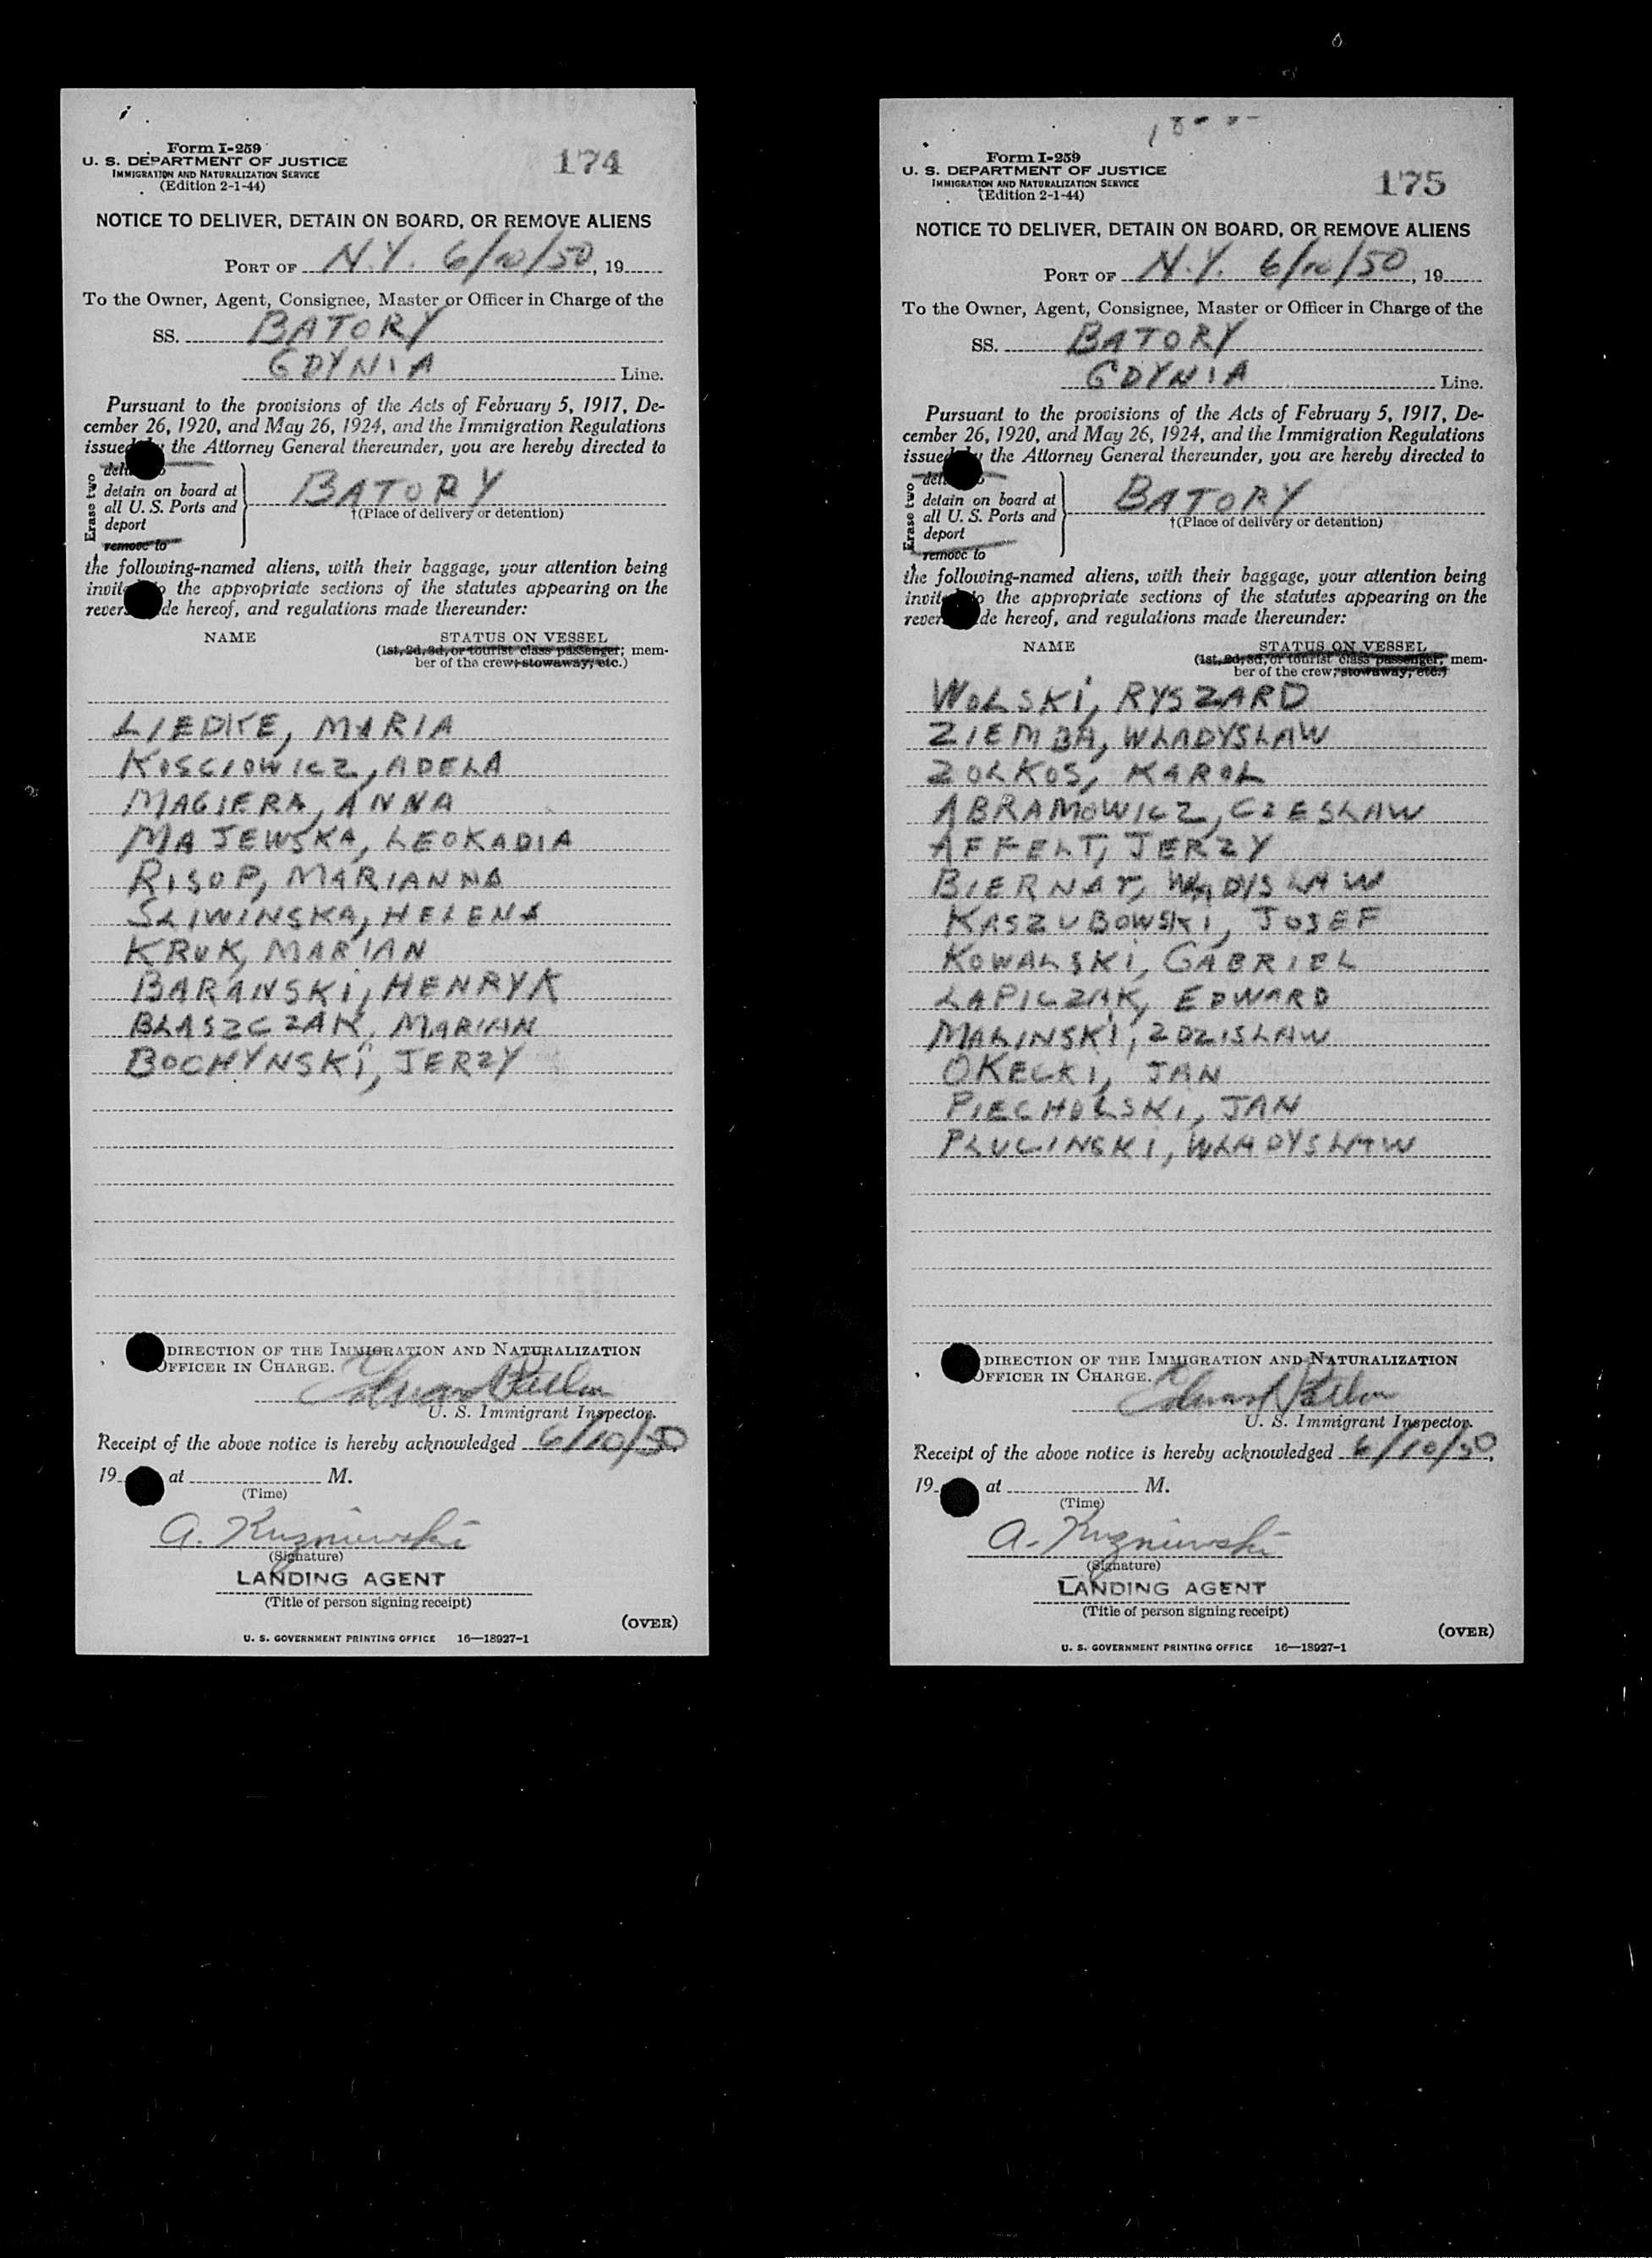 Form I-259
U. S. DEPARTMENT OF JUSTICE
IMMIGRATION AND NATURALIZATION SERVICE
(Edition 2-1-44)
174
NOTICE TO DELIVER, DETAIN ON BOARD, OR REMOVE ALIENS
PORT OF N.Y. 6/10/50, 19
To the Owner, Agent, Consignee, Master or Officer in Charge of the
SS. BATORY
GDYNIA Line.
Pursuant to the provisions of the Acts of February 5, 1917, De-
cember 26, 1920, and May 26, 1924, and the Immigration Regulations
issued the Attorney General thereunder, you are hereby directed to
Erase two
detain on board at
all U. S. Ports and
deport
remove to
BATORY
†(Place of delivery or detention)
the following-named aliens, with their baggage, your attention being
the appropriate sections of the statutes appearing on the
hereof, and regulations made thereunder:
NAME STATUS ON VESSEL
(1st, 2d, 3d, or tourist class passenger; mem-
ber of the crew; stowaway, etc.)
LIEDKE, MARIA
KOSCIOWICZ, ADELA
MAGIERA, ANNA
MAJEWSKA, LEOKADIA
RISOP, MARIANNA
SLIWINSKA, HELENA
KRUK, MARIAN
BARANSKI, HENRYK
BLASZCZAK, MARIAN
BOCHYNSKI, JERZY
DIRECTION OF THE IMMIGRATION AND NATURALIZATION
OFFICER IN CHARGE.
U. S. Immigrant Inspector.
Receipt of the above notice is hereby acknowledged 6/10/50
19 at M.
(Time)
A. Kuzniewski
(Signature)
LANDING AGENT
(Title of person signing receipt)
(OVER)
U. S. GOVERNMENT PRINTING OFFICE 16—18927-1
Form I-259
U. S. DEPARTMENT OF JUSTICE
IMMIGRATION AND NATURALIZATION SERVICE
(Edition 2-1-44)
175
NOTICE TO DELIVER, DETAIN ON BOARD, OR REMOVE ALIENS
PORT OF N.Y. 6/10/50, 19
To the Owner, Agent, Consignee, Master or Officer in Charge of the
SS. BATORY
GDYNIA Line.
Pursuant to the provisions of the Acts of February 5, 1917, De-
cember 26, 1920, and May 26, 1924, and the Immigration Regulations
issued the Attorney General thereunder, you are hereby directed to
Erase two
detain on board at
all U. S. Ports and
deport
remove to
BATORY
†(Place of delivery or detention)
the following-named aliens, with their baggage, your attention being
the appropriate sections of the statutes appearing on the
hereof, and regulations made thereunder:
NAME STATUS ON VESSEL
(1st, 2d, 3d, or tourist class passenger; mem-
ber of the crew; stowaway, etc.)
WOLSKI, RYSZARD
ZIEMBA, WLADYSLAW
ZOLKOS, KAROL
ABRAMOWICZ, CZESLAW
AFFELT, JERZY
BIERNAT, WADISLAW
KASZUBOWSKI, JOSEF
KOWALSKI, GABRIEL
LAPICZAK, EDWARD
MALINSKI, ZDZISLAW
OKECKI, JAN
PIECHOLSKI, JAN
PLUCINSKI, WLADYSLAW
DIRECTION OF THE IMMIGRATION AND NATURALIZATION
OFFICER IN CHARGE.
U. S. Immigrant Inspector.
Receipt of the above notice is hereby acknowledged 6/10/50,
19 at M.
(Time)
A. Kuzniewski
(Signature)
LANDING AGENT
(Title of person signing receipt)
(OVER)
U. S. GOVERNMENT PRINTING OFFICE 16—18927-1